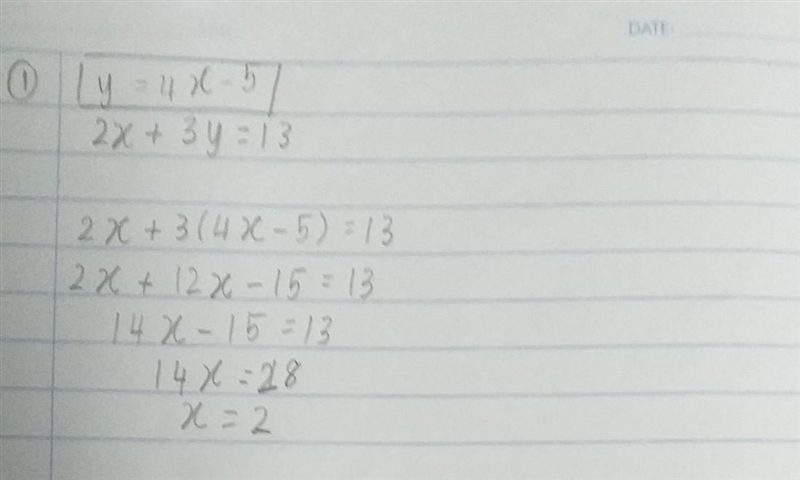 DATE:
① y = 4x - 5
2x + 3y = 13
2x + 3(4x - 5) = 13
2x + 12x - 15 = 13
14x - 15 = 13
14x = 28
x = 2